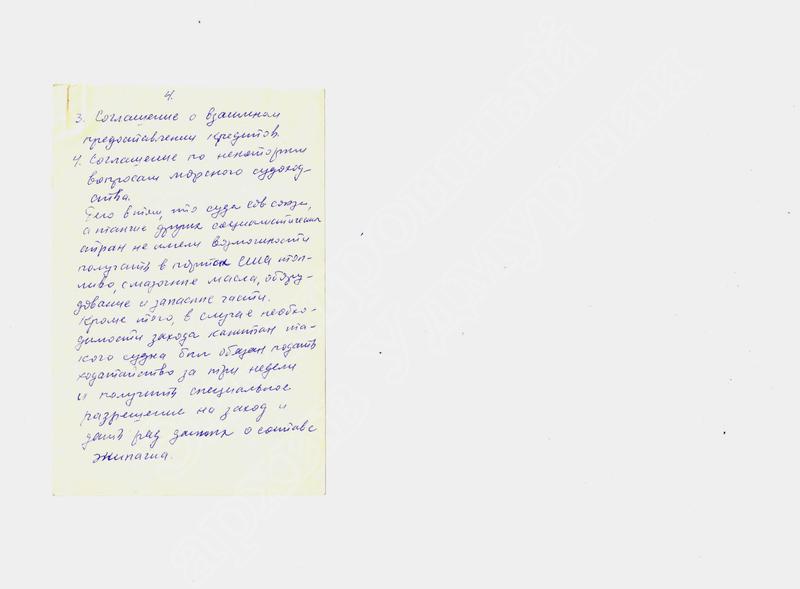 4.
3. Соглашение о взаимном
предоставлении кредитов.
4. Соглашение по некоторым
вопросам морского судоход-
ства.
в том, что суда Сов союза,
а также других социалистических
стран не имели возможности
получать в портах США топ-
ливо, смазочные масла, обору-
дование и запасные части.
Кроме того, в случае необхо-
димости захода капитан та-
кого судна был обязан подать
ходатайство за три недели
и получить специальное
разрешение на заход и
дать ряд данных о составе
экипажа.